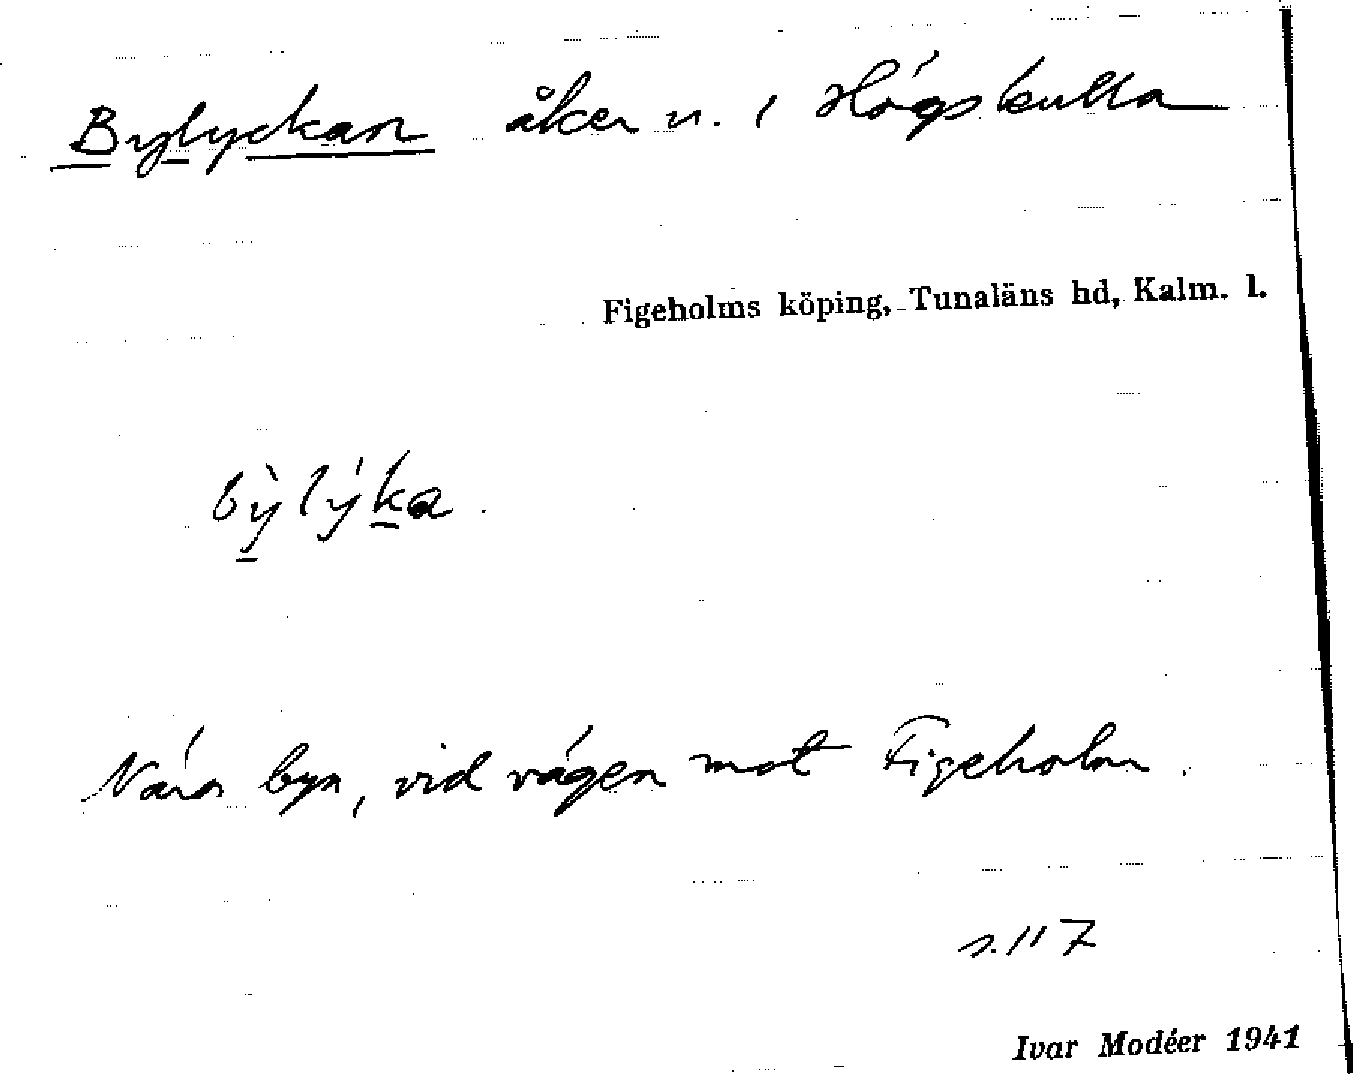 Bylyckan åker n. i Högskulla
Figeholms köping, Tunaläns hd, Kalm. l.
bỳlýka.
Nära byn, vid vägen mot Figeholm.
s. 117
Ivar Modéer 1941